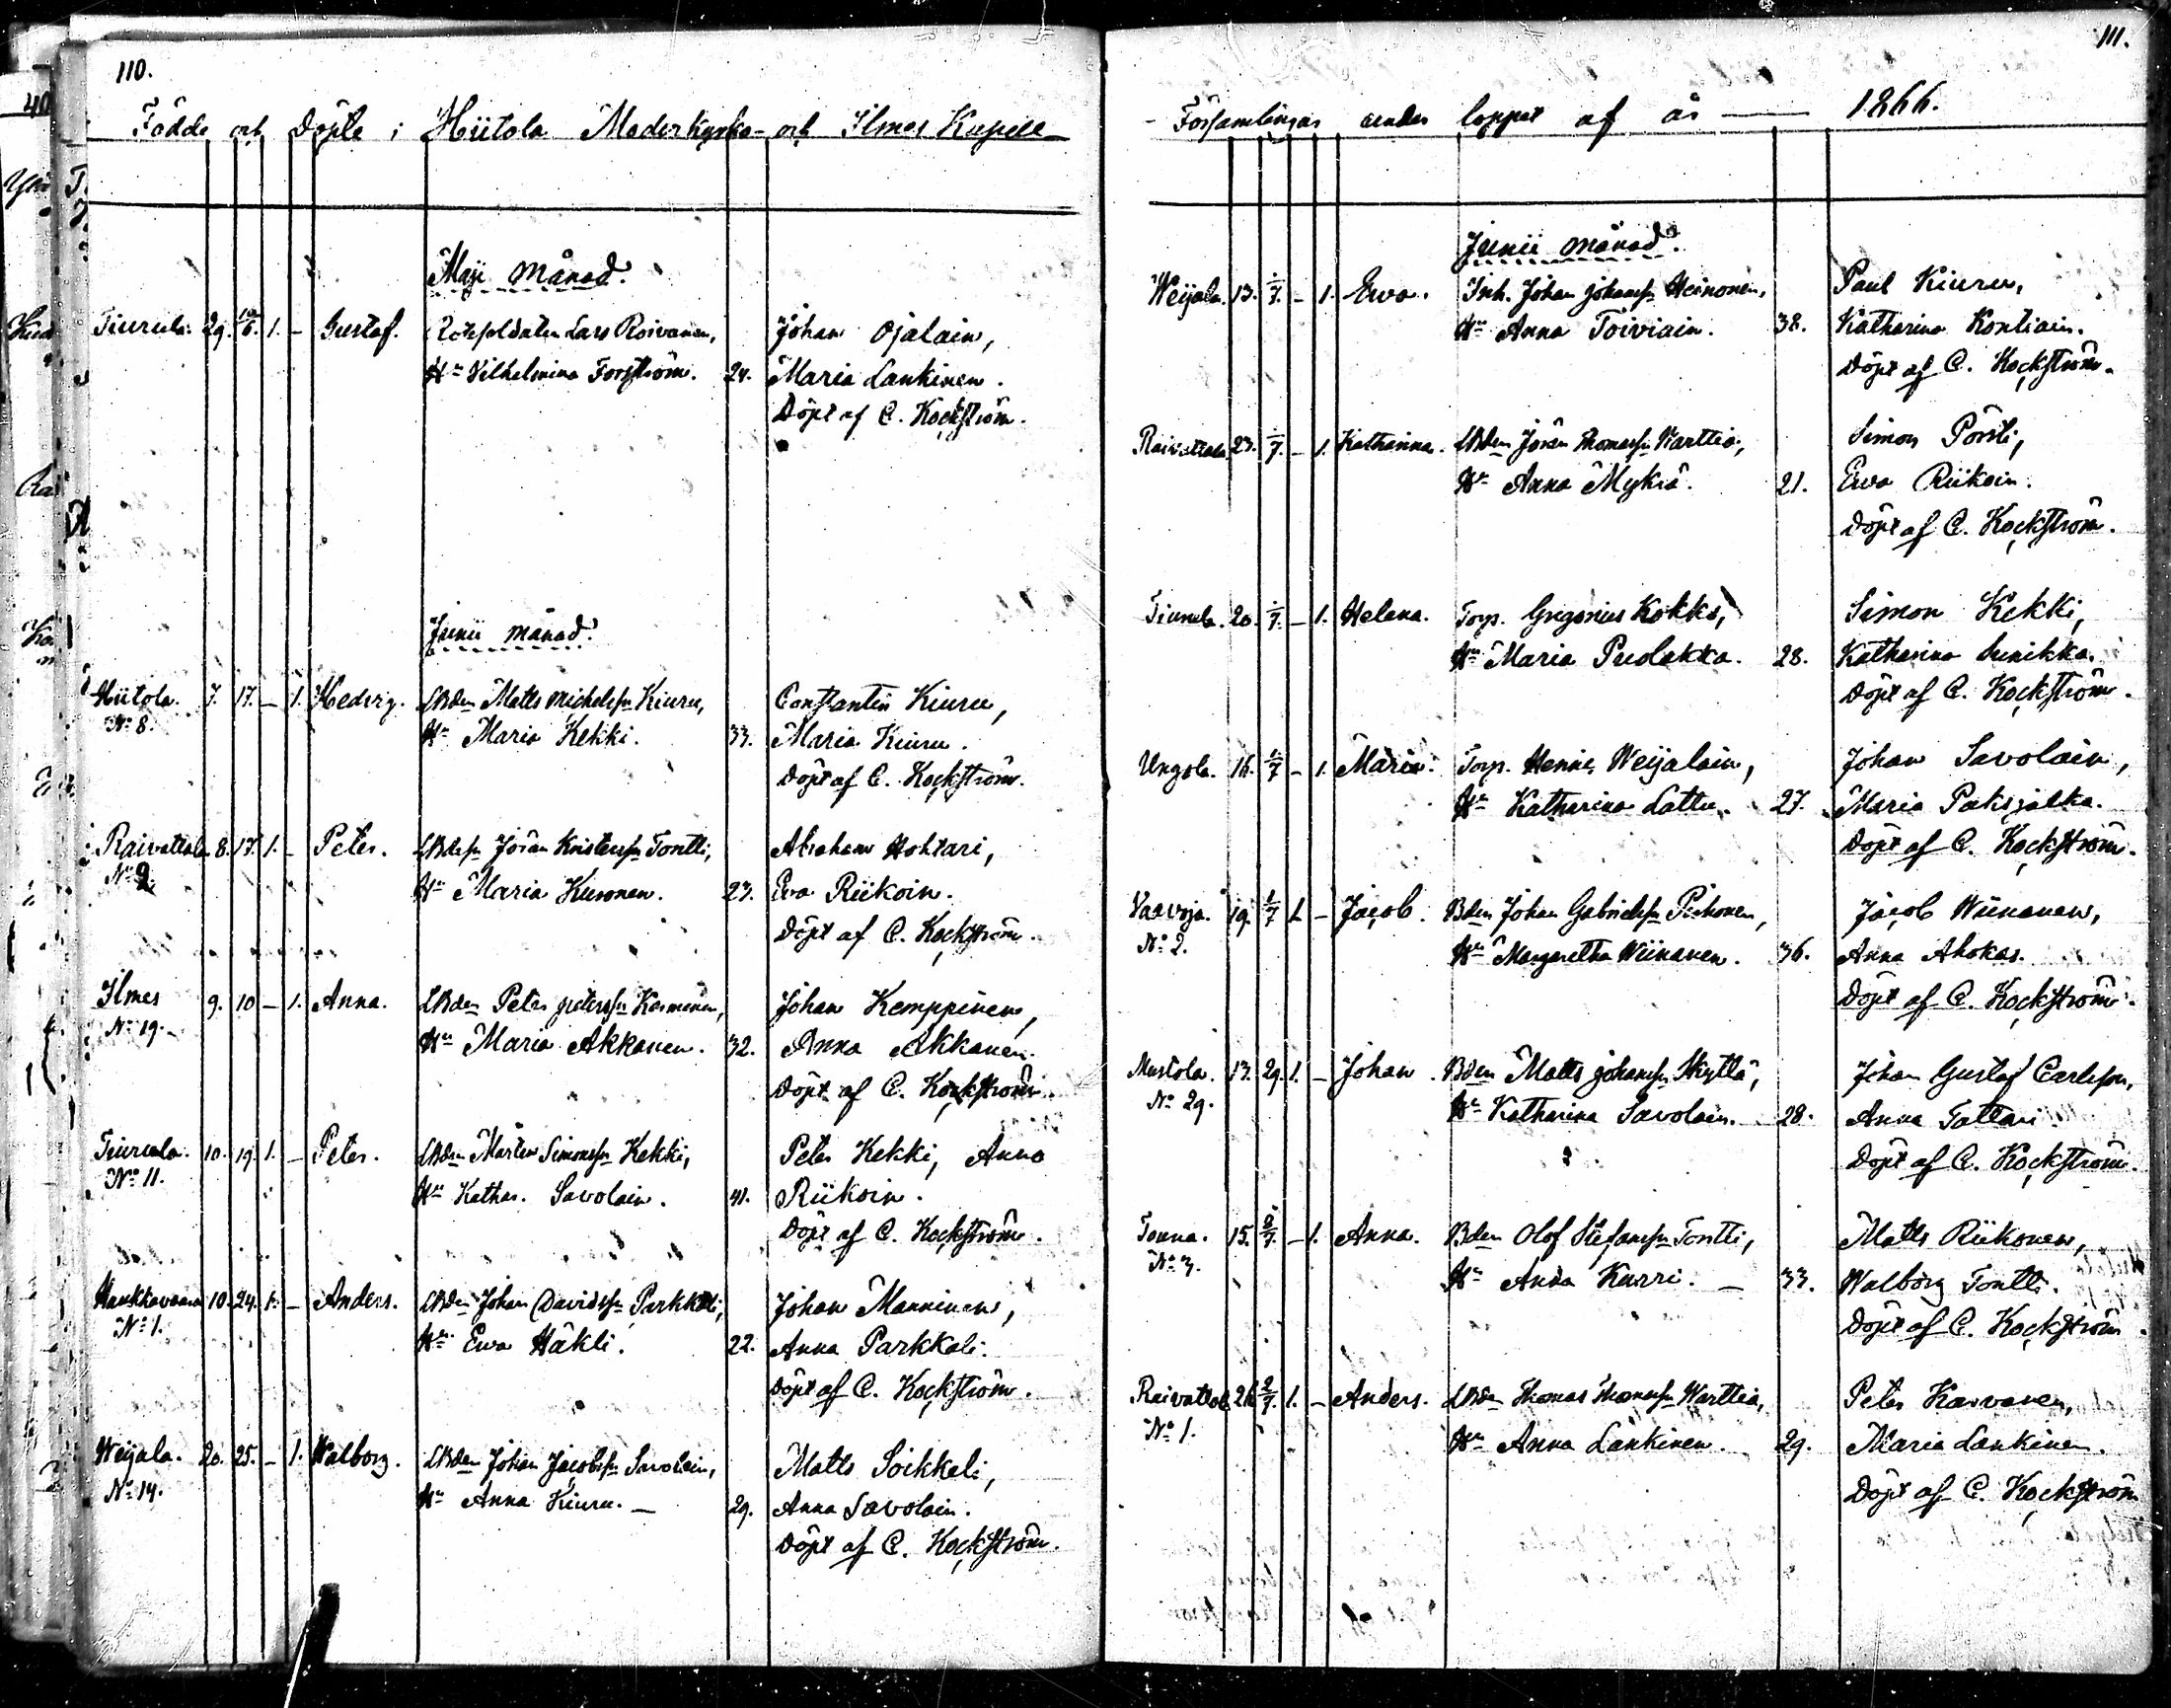 110.
Födde och Döpte i Hiitola Moderkyrko- och Ilmes Kapell
Maji Månad.
Tiurula. 29. 10/6. 1. - Gustaf. Rotesoldaten Lars Roivanen, Johan Ojalain,
Hu Vilhelmina Forsström. 24. Maria Lankinen.
Döpt af C. Kockström.
Junii månad.
Hiitola. 7. 17. - 1. Hedvig. LBden Matts Michelsn Kiuru, Constantin Kiuru,
No 8. Hu Maria Kekki. 33. Maria Kiuru.
Döpt af C. Kockström.
Raivattala 8. 17. 1. - Peter. LBdesn Jöran Kristersn Tontti, Abraham Hohtari,
No 9. Hu Maria Kuronen. 23. Eva Riikoin.
Döpt af C. Kockström.
Ilmes 9. 10 - 1. Anna. LBden Peter petersn Kosminen, Johan Kemppinen,
No 19. Hu Maria Akkanen. 32. Anna Akkanen.
Döpt af C. Kockström.
Tiurula. 10. 19. 1. - Peter. LBden Mårten Simonsn Kekki, Peter Kekki, Anna
No 11. Hu Kathar. Savolain. 41. Riikoin.
Döpt af C. Kockström.
Haukkavaara 10. 24. 1. - Anders. LBden Johan Davidsn Parkkali, Johan Manninen,
No 1. Hu Ewa Häkli. 22. Anna Parkkali.
Döpt af C. Kockström.
Weijala. 20. 25. - 1. Walborg. LBden Johan Jacobsn Savolain, Matts Soikkeli,
No 14. Hu Anna Kiuru. - 29. Anna Savolain.
Döpt af C. Kockström.
111.
- Församlingar under loppet af år 1866.
Junii månad.
Weijala. 13. 1/7. - 1. Ewa. Inh. Johan Johansn Heinonen, Paul Kiuru,
Hu Anna Toiviain. 38. Katharina Kontiain.
Döpt af C. Kockström.
Raivattala 23. 1/7. - 1. Katharina. LBden Jöran Thomasn Warttia, Simon Pörsti,
Hu Anna Mykrä. 21. Ewa Riikoin.
Döpt af C. Kockström.
Tiurula. 20. 1/7. - 1. Helena. Torp. Gregorius Kokko, Simon Kekki,
Hu Maria Puolakka. 28. Katharina Sunikka.
Döpt af C. Kockström.
Ungola. 16. 1/7 - 1. Maria. Torp. Henric Weijalain, Johan Savolain,
Hu Katharina Lattu. 27. Maria Paksujalka.
Döpt af C. Kockström.
Vaavoja. 19. 1/7 1. - Jacob. Bden Johan Gabrielsn Pirhonen, Jacob Wiinanen,
No 2. Hu Margaretha Wiinanen. 36. Anna Ahokas.
Döpt af C. Kockström.
Mustola. 13. 29. 1. - Johan. Bden Matts Johansn Skyttä, Johan Gustaf Carlsson,
No 29. Hu Katharina Savolain. 28. Anna Tattari
Döpt af C. Kockström.
Tounna. 15. 2/7. - 1. Anna. Bden Olof Stefansn Tontti, Matts Riikonen,
No 3. Hu Anna Kurri. - 33. Walborg Tontti.
Döpt af C. Kockström.
Raivattala 26 2/7. 1. - Anders. LBden Thomas Thomasn Warttia, Peter Karvanen,
No 1. Hu Anna Lankinen. 29. Maria Lankinen.
Döpt af C. Kockström